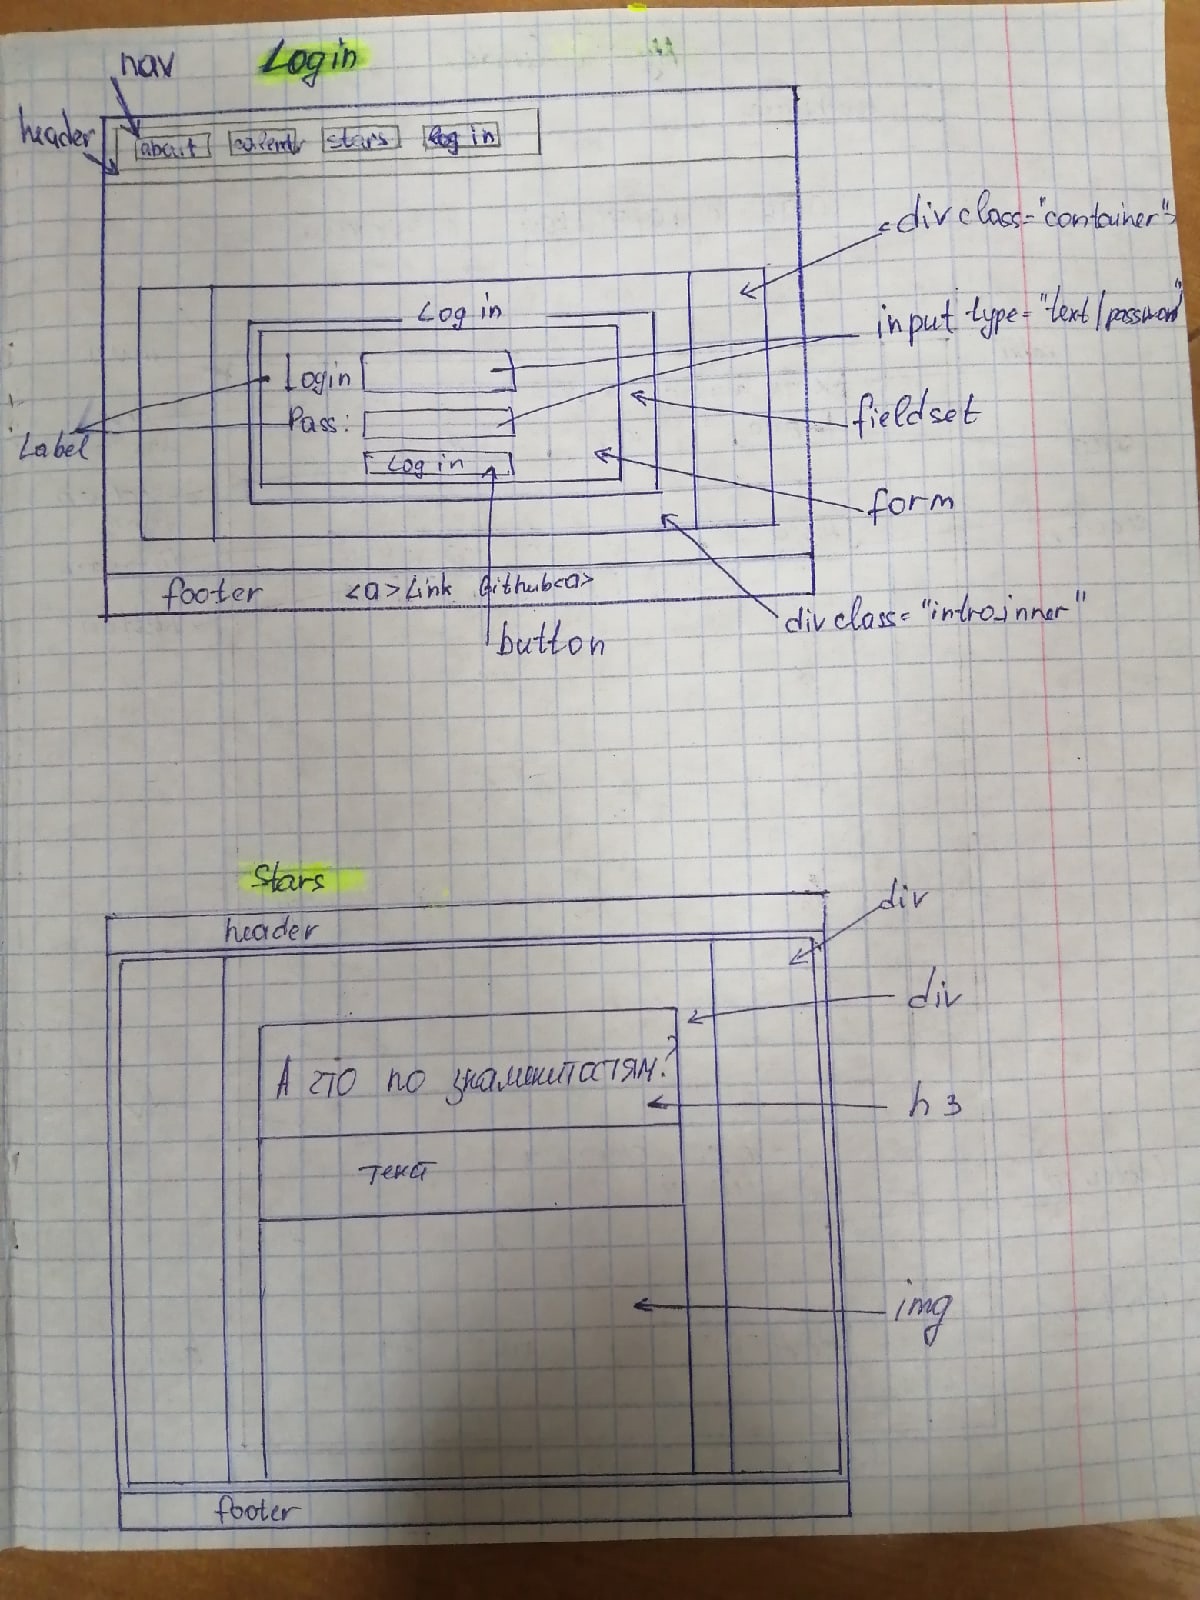 nav
Login
header
about
stars
log in
<div class="container">
Log in
input type="text/password"
Login
fieldset
Pass:
Label
Log in
form
footer <a>Link Github<a>
div class="intro_inner"
button
Stars
div
header
div
А что по знаменитостям?
h3
текст
img
footer